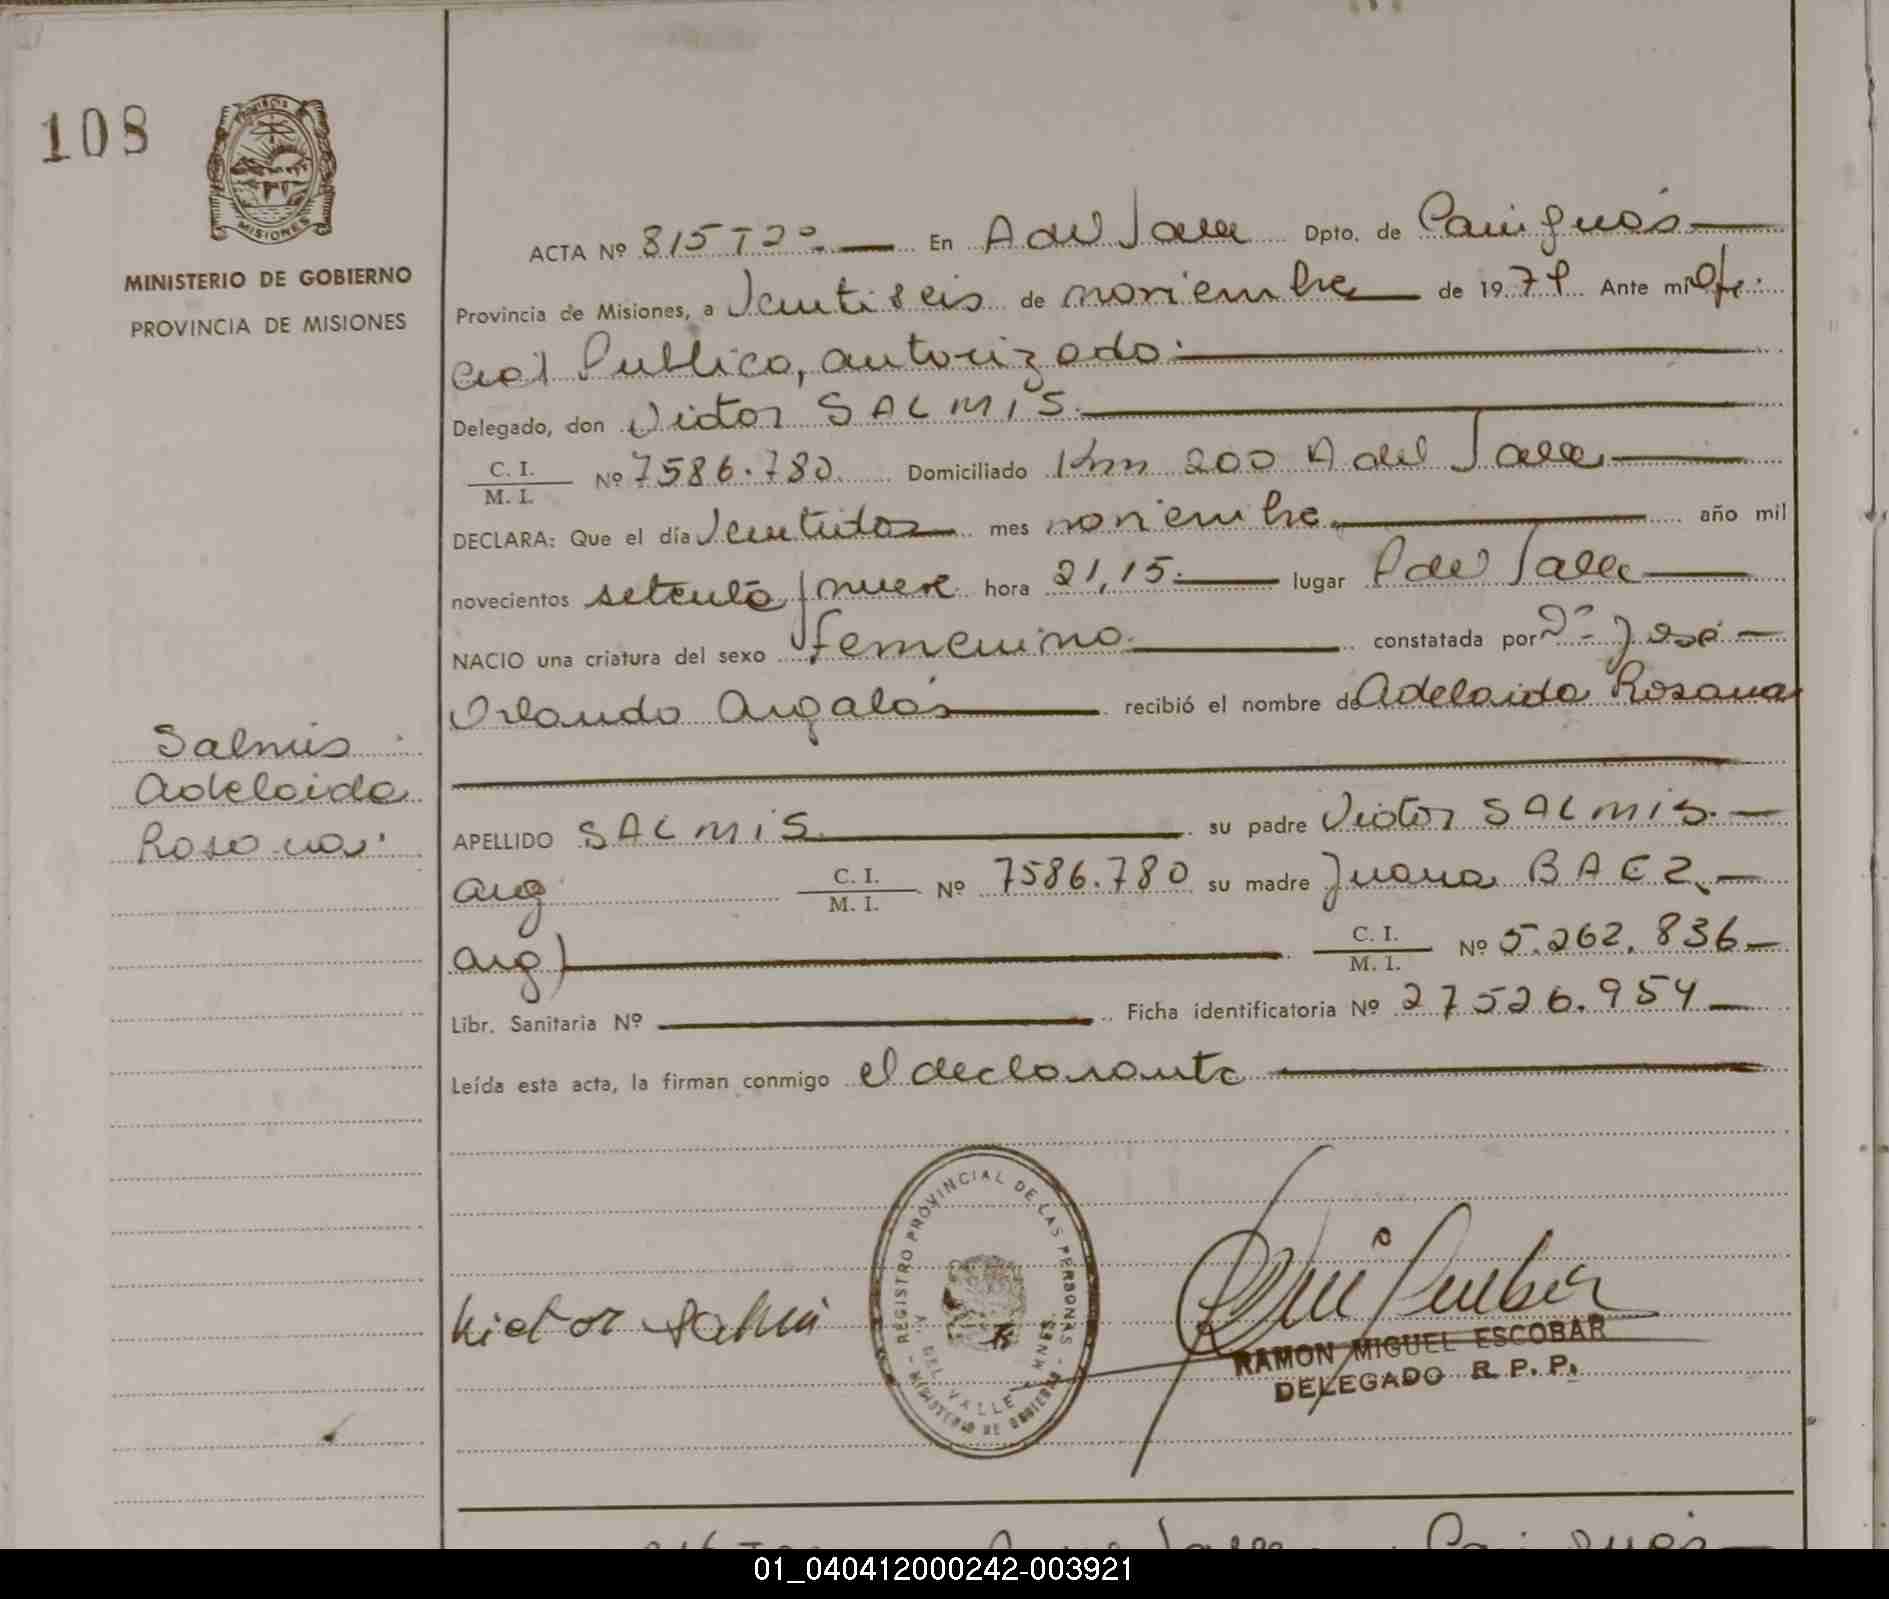 108
MISIONES
MINISTERIO DE GOBIERNO
PROVINCIA DE MISIONES
ACTA Nº 815 T2º En A del Valle Dpto. de Cainguás
Provincia de Misiones, a Veintiseis de noviembre de 1979 Ante mi Ofi
cial Publico, autorizado.
Delegado, don Victor SALMIS.
C. I.
M. I. Nº 7586.780. Domiciliado Km 200 A del Valle
DECLARA: Que el día Veintidos mes noviembre año mil
novecientos setenta y nueve hora 21,15. lugar A del Valle
NACIO una criatura del sexo femenino. constatada por Dº José
Orlando Argalás recibió el nombre de Adelaida Rosana
Salmis
Adelaida
Rosana.
APELLIDO SALMIS su padre Victor SALMIS.
arg C. I.
M. I. Nº 7586.780 su madre Juana BAEZ
arg) C. I.
M. I. Nº 5.262.836
Libr. Sanitaria Nº Ficha identificatoria Nº 27526.954
Leída esta acta, la firman conmigo el declarante
REGISTRO PROVINCIAL DE LAS PERSONAS
MINISTERIO DE GOBIERNO
A. DEL VALLE MNES.
Victor Salmis
RAMON MIGUEL ESCOBAR
DELEGADO R. P. P.
01_040412000242-003921